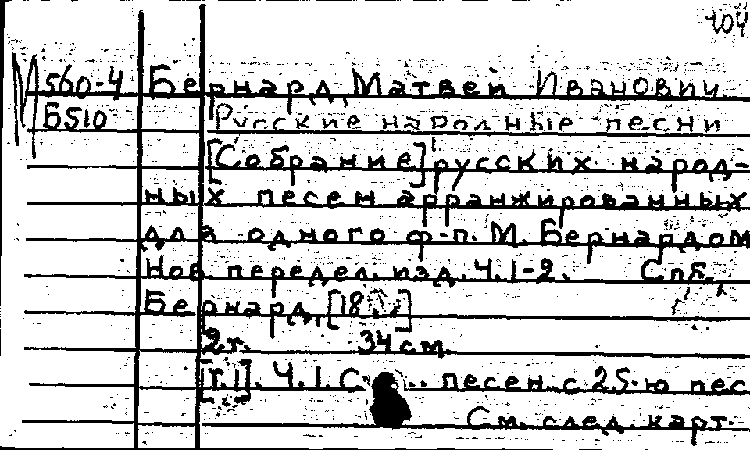 104
М 560-4 Бернард, Матвей Иванович
Б510 Русские народные песни
[Собрание] русских народ-
ных песен арранжированных
для одного ф-п. М. Бернардом
Нов. передел. изд. Ч. 1-2. Спб.,
Бернард, [18..]
2 т. 34 см.
[Т. 1]. Ч. 1. С .. песен с 25-ю пес
См. след. карт.